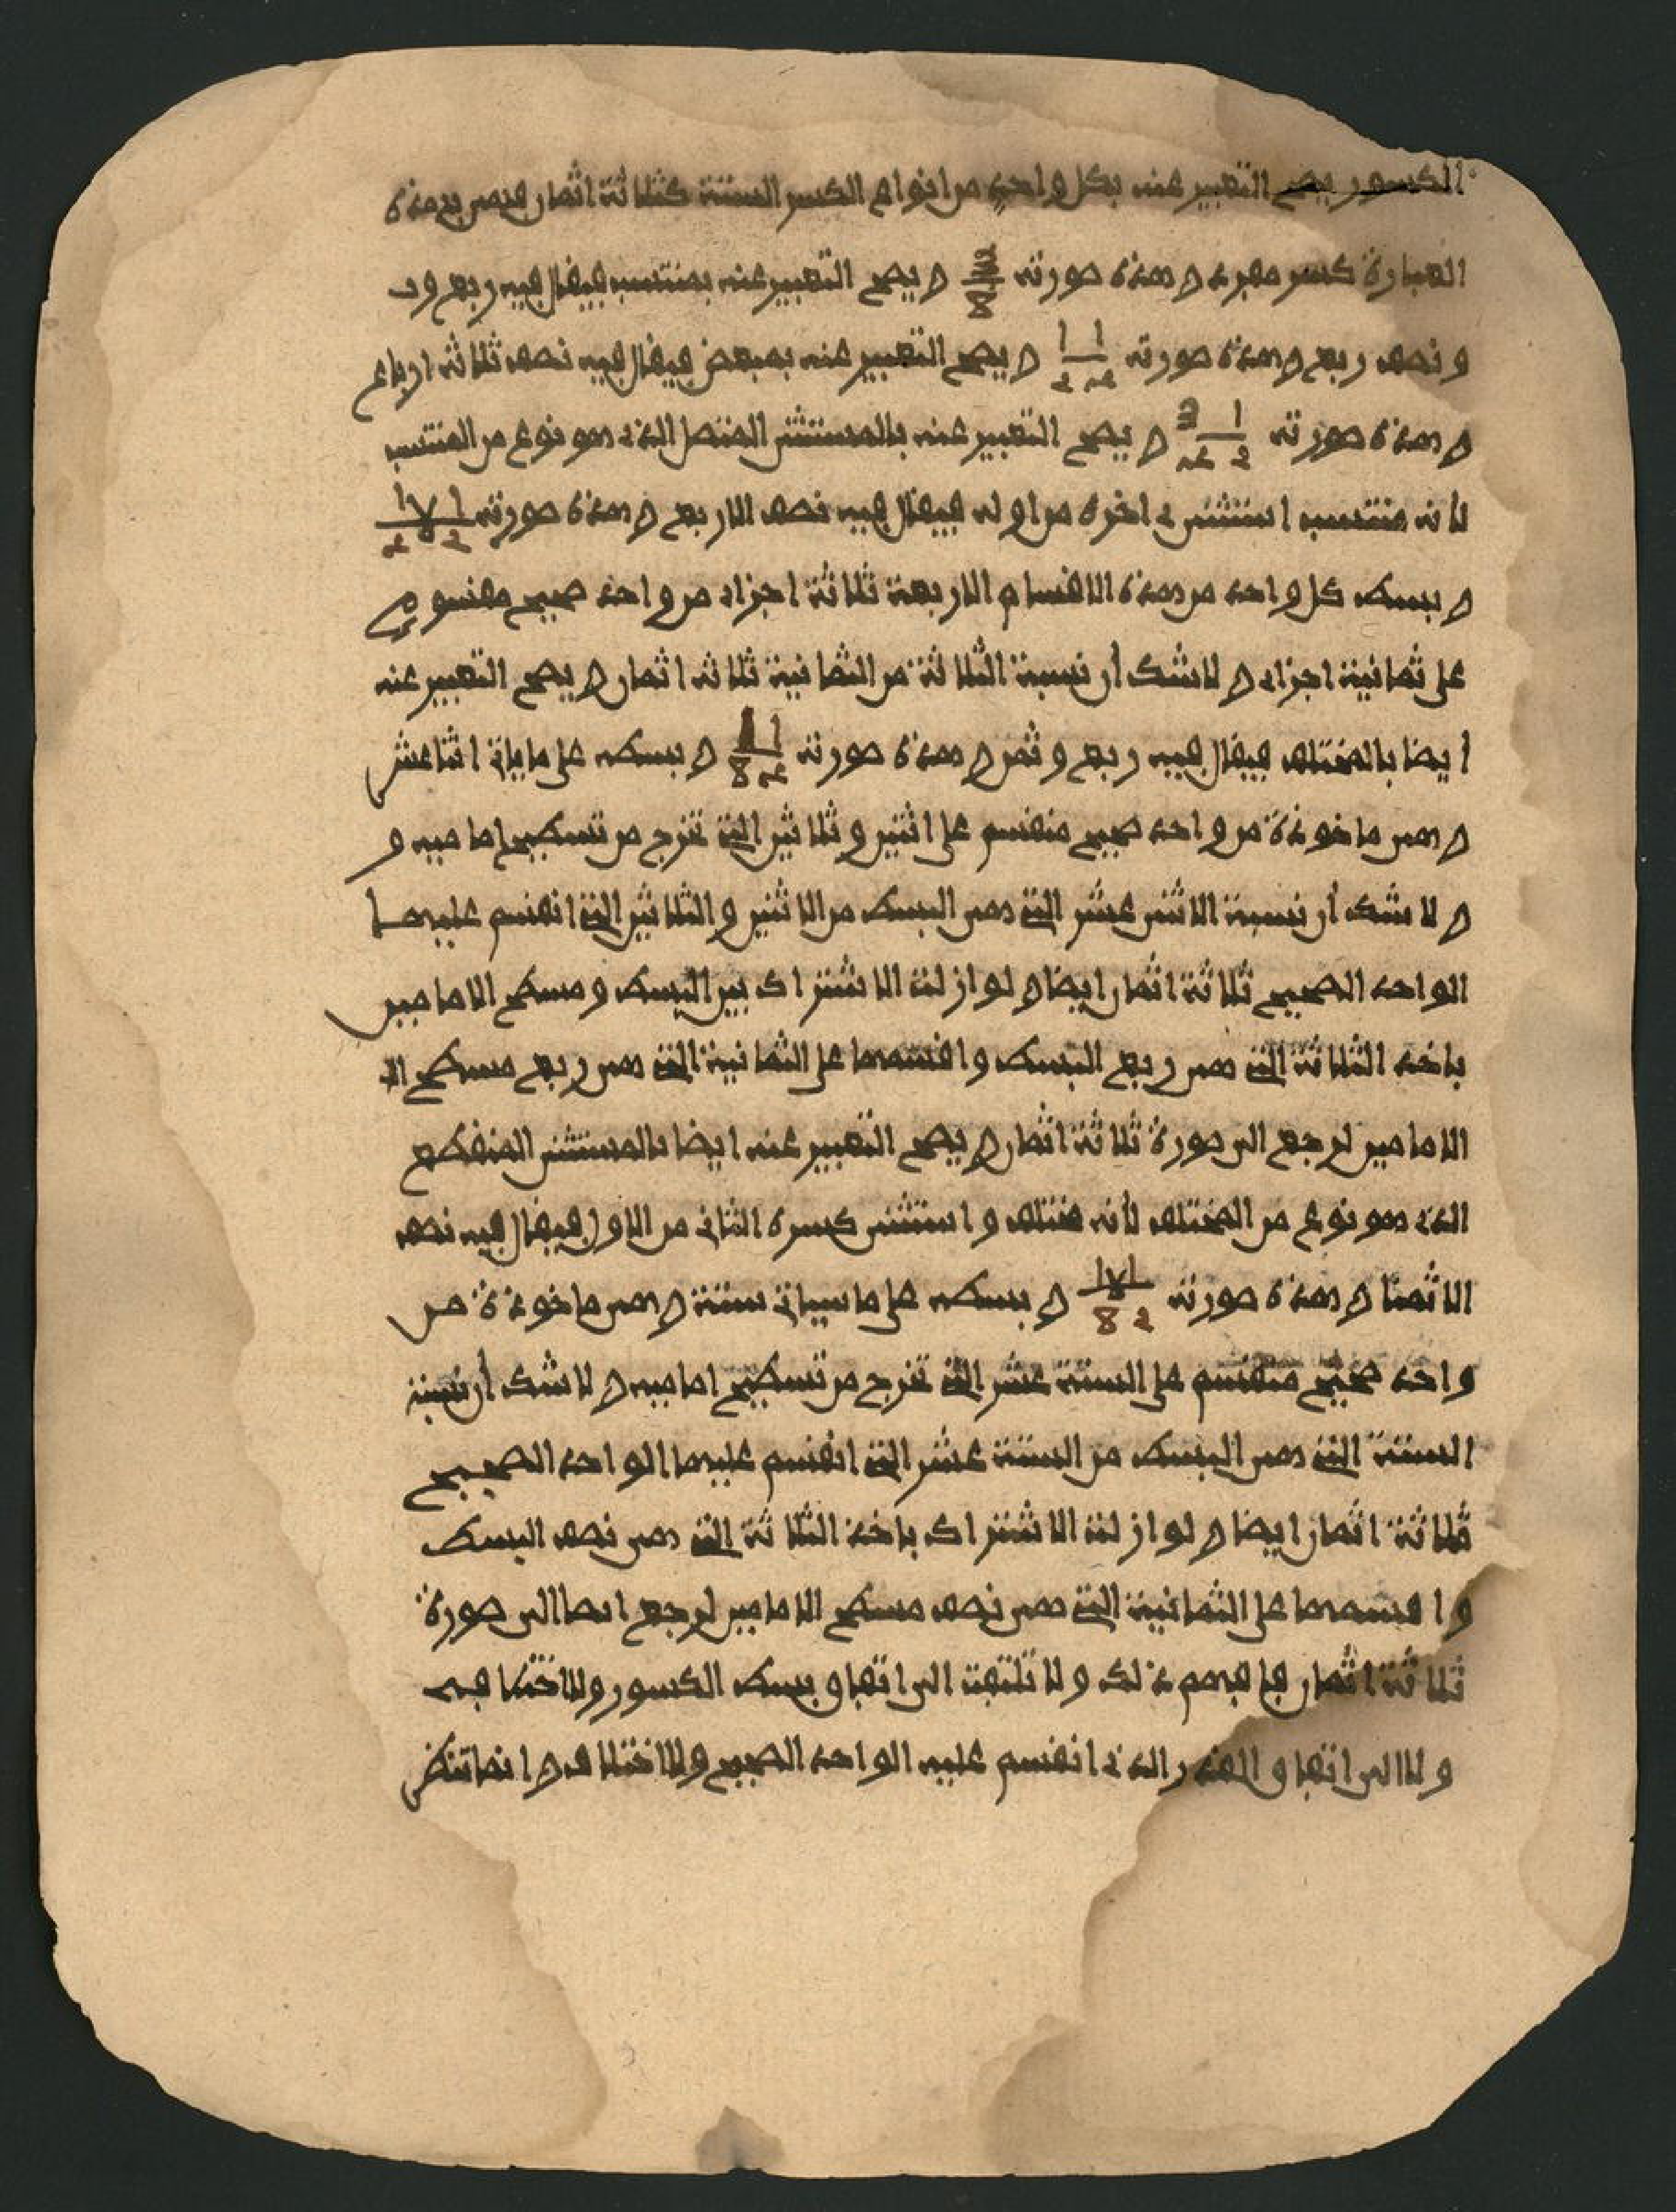 الكسور يصح التعبير عنه بكل واحد من انواع الكسر الستة كثلاثة اثمان فهي بهذه
العبارة كسر مفرد وهذه صورته 3/8 ويصح التعبير عنه بمنتسب فيقال فيه ربع و
ونصف ربع وهذه صورته 1 1/2 4 ويصح التعبير عنه بمبعض فيقال فيه نصف ثلاثة ارباع
وهذه صورته 1 3/2 4 ويصح التعبير عنه بالمستثنى المتصل الذي هو نوع من المنتسب
لانه منتسب استثني اخره من اوله فيقال فيه نصف الا ربع وهذه صورته 1 لا 1/2 4
وبسط كل واحد من هذه الاقسام الاربعة ثلاثة اجزاء من واحد صحيح مقسوم
على ثمانية اجزاء ولا شك أن نسبة الثلاثة من الثمانية ثلاثه اثمان ويصح التعبير عنه
أيضا بالمختلف فيقال فيه ربع وثمن وهذه صورته 1 1/4 8 وبسطه على ما ياتي اثنا عشر
وهي ماخوذة من واحد صحيح منقسم على اثنين وثلاثين التي تخرج من تسطيح اماميه و
ولا شك أن نسبة الاثني عشر التي هي البسط من الاثنين والثلاثين التي انقسم عليها
الواحد الصحيح ثلاثة اثمان ايضا ولو ازلت الاشتراك بين البسط ومسطح الامامين
باخذ الثلاثة التي هي ربع البسط واقسمها على الثمانية التي هي ربع مسطح الا
الامامين لرجع الى صورة ثلاثة اثمان ويصح التعبير عنه ايضا بالمستثنى المنقطع
الذي هو نوع من المختلف لأنه مختلف واستثني كسره الثاني من الاول فيقال فيه نصف
الا ثمنا وهذه صورته 1 لا 1/2 8 وبسطه على ما سياتي ستة وهي ماخوذة من
واحد صحيح منقسم على الستة عشر التي تخرج من تسطيح اماميه ولا شك أن نسبة
الستة التي هي البسط من الستة عشر التي انقسم عليها الواحد الصحيح
ثلاثة اثمان ايضا ولو ازلت الاشتراك باخذ الثلاثة التي هي نصف البسط
واقسمها على الثمانية التي هي نصف مسطح الامامين لرجع ايضا الى صورة
ثلاثة اثمان فافهم ذلك ولا تلتفت الى اتفاق بسط الكسور ولا اختلافه
ولا الى اتفاق القدر الذي انقسم عليه الواحد الصحيح ولا اختلافه وانما تنظر